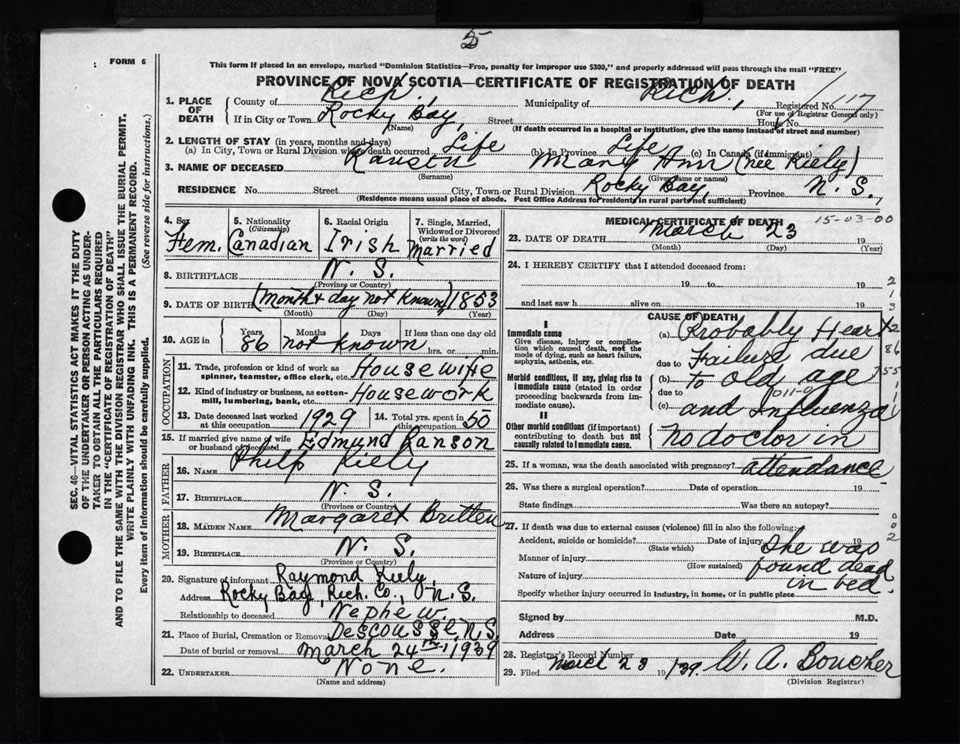 5
FORM 6
This form if placed in an envelope, marked "Dominion Statistics—Free, penalty for improper use $300," and properly addressed will pass through the mail "FREE"
PROVINCE OF NOVA SCOTIA—CERTIFICATE OF REGISTRATION OF DEATH
1. PLACE OF DEATH
County of Rich. Municipality of Rich. Registered No. 117
(For use of Registrar General only)
If in City or Town Rocky Bay, Street House No.
(Name) (If death occurred in a hospital or institution, give the name instead of street and number)
2. LENGTH OF STAY (in years, months and days)
(a) In City, Town or Rural Division where death occurred Life (b) In Province Life (c) In Canada (if immigrant)
3. NAME OF DECEASED Ranson Mary Ann (nee Kiely)
(Surname) (Given name or names)
RESIDENCE No. Street City, Town or Rural Division Rocky Bay, Province N. S.,
(Residence means usual place of abode. Post Office Address for residents in rural parts not sufficient)
4. Sex Fem.
5. Nationality (Citizenship) Canadian
6. Racial Origin Irish
7. Single, Married, Widowed or Divorced (write the word) Married
8. BIRTHPLACE N. S.
(Province or Country)
9. DATE OF BIRTH (Month & day not known) 1853
(Month) (Day) (Year)
10. AGE in Years 86 Months Days not known If less than one day old hrs. or min.
OCCUPATION
11. Trade, profession or kind of work as spinner, teamster, office clerk, etc. Housewife
12. Kind of industry or business, as cotton-mill, lumbering, bank, etc. Housework
13. Date deceased last worked at this occupation 1929
14. Total yrs. spent in this occupation 50
15. If married give name of wife or husband of deceased Edmund Ranson
FATHER
16. NAME Philp Kiely
17. BIRTHPLACE N. S.
(Province or Country)
MOTHER
18. MAIDEN NAME Margaret Britten
19. BIRTHPLACE N. S.
(Province or Country)
20. Signature of informant Raymond Kiely,
Address Rocky Bay, Rich. Co., N. S.
Relationship to deceased Nephew.
21. Place of Burial, Cremation or Removal Descousse, N. S.
Date of burial or removal March 24th, 1939
22. UNDERTAKER None.
(Name and address)
MEDICAL CERTIFICATE OF DEATH
15-03-00
23. DATE OF DEATH March 23 19
(Month) (Day) (Year)
24. I HEREBY CERTIFY that I attended deceased from:
19 to 19
and last saw h alive on 19
CAUSE OF DEATH
I
Immediate cause
Give disease, injury or complication which caused death, not the mode of dying, such as heart failure, asphyxia, asthenia, etc.
Morbid conditions, if any, giving rise to immediate cause (stated in order proceeding backwards from immediate cause).
II
Other morbid conditions (if important) contributing to death but not causally related to immediate cause.
(a) Probably Heart
due to Failure due
(b) to old age
due to
(c) and Influenza
No doctor in
25. If a woman, was the death associated with pregnancy? attendance
26. Was there a surgical operation? Date of operation 19
State findings Was there an autopsy?
27. If death was due to external causes (violence) fill in also the following:
Accident, suicide or homicide? Date of injury 19
(State which)
Manner of injury She was
(How sustained) found dead
Nature of injury in bed.
Specify whether injury occurred in industry, in home, or in public place
Signed by M.D.
Address Date 19
28. Registrar's Record Number
29. Filed March 23 19/39. W. A. Boucher
(Division Registrar)
SEC. 46—VITAL STATISTICS ACT MAKES IT THE DUTY
OF THE UNDERTAKER OR PERSON ACTING AS UNDER-
TAKER TO OBTAIN ALL THE PARTICULARS REQUIRED
IN THE "CERTIFICATE OF REGISTRATION OF DEATH"
AND TO FILE THE SAME WITH THE DIVISION REGISTRAR WHO SHALL ISSUE THE BURIAL PERMIT.
WRITE PLAINLY WITH UNFADING INK. THIS IS A PERMANENT RECORD.
Every item of information should be carefully supplied. (See reverse side for instructions.)